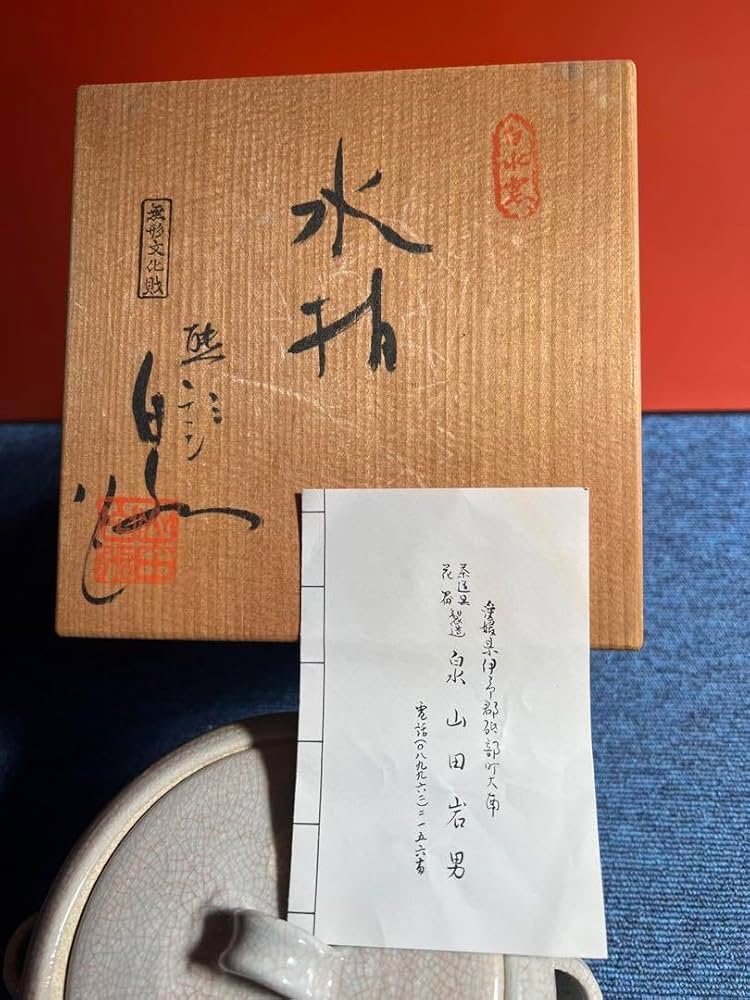 白水窯
水指
無形文化財
白水
愛媛県伊予郡砥部町大南
茶道具
花器製造
白水 山田岩男
電話(〇八九九六二)二一五六番